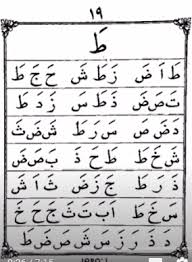 ١٩
طَ
طَ اَ ضَ زَ طَ شَ حَ جَ طَ
تَ صَ ضَ ذَ طَ سَ زَ دَ طَ
دَ ضَ صَ سَ رَ طَ شَ ضَ ثَ
شَ خَ طَ طَ حَ ذَ بَ صَ ضَ
ذَ رَ طَ جَ زَ ضَ ثَ اَ شَ
سَ خَ طَ اَ بَ تَ ثَ جَ حَ خَ
دَ ذَ رَ زَ سَ شَ صَ ضَ طَ